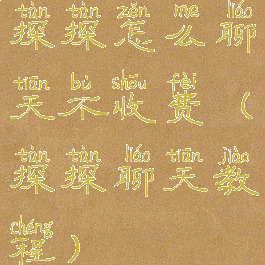 tàn tàn zěn me liáo
探 探 怎 么 聊
tiān bù shōu fèi
天 不 收 费 (
tàn tàn liáo tiān jiào
探 探 聊 天 教
chéng
程 )